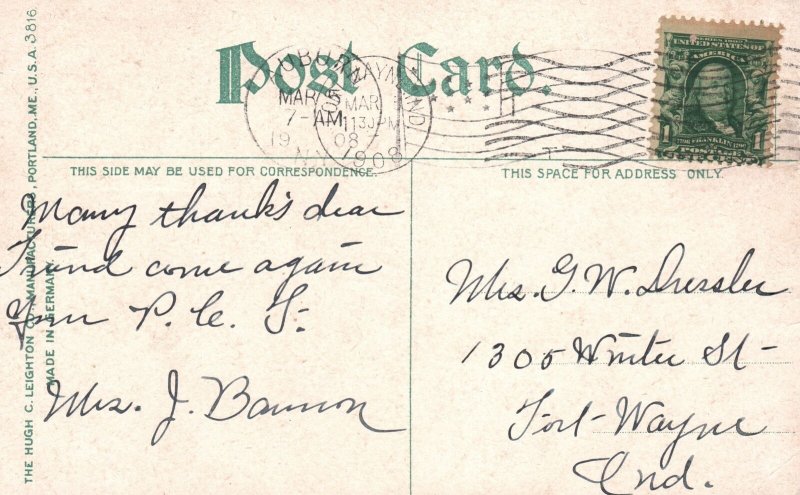 Post Card.
AUBURN
MAR 5
7-AM
1908
N.Y.
FORT WAYNE, IND.
MAR
1130PM
1908
SERIES 1902
UNITED STATES OF
AMERICA
1790 FRANKLIN 1790
1 1
THIS SIDE MAY BE USED FOR CORRESPONDENCE.
THIS SPACE FOR ADDRESS ONLY.
Many thanks dear
Friend come again
Your P. C. F.
Mrs. J. Bannon
Mrs. G. W. Dressler
1305 Winter St-
Fort-Wayne
Ind.
THE HUGH C. LEIGHTON CO., MANUFACTURERS, PORTLAND, ME., U.S.A. 3816
MADE IN GERMANY.